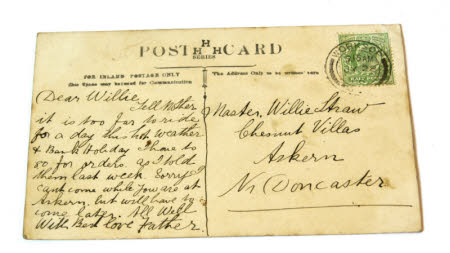 POST HHH CARD
SERIES
FOR INLAND POSTAGE ONLY
This Space may be used for Communication
The Address Only to be written here
Dear Willie,
Tell Mother
it is too far to ride
for a day this hot weather
& Bank Holiday I have to
go for orders as I told
them last week. Sorry I
cant come while you are at
Askern, but will have to
come later. All Well
With Best love Father.
Master Willie Straw
Chesnut Villas
Askern
Nr Doncaster